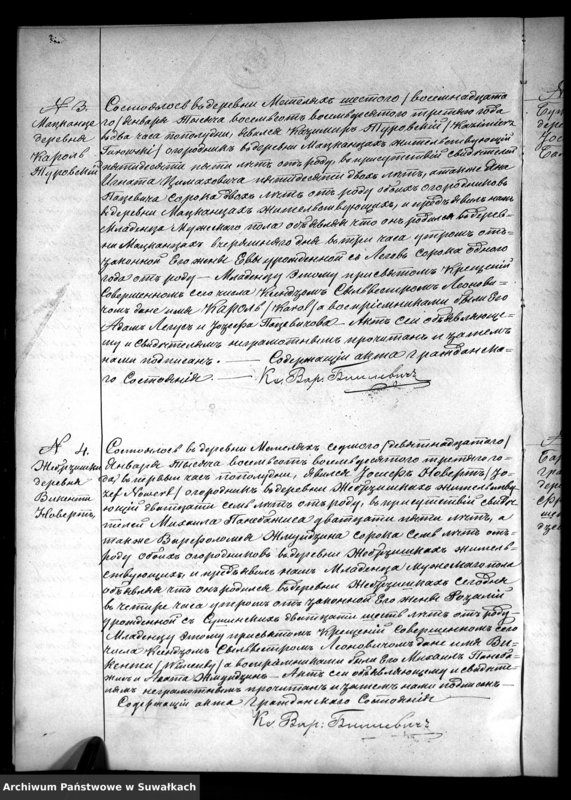 N 3.
Мацканце
деревня
Кароль
Туровскій
Состоялось въ деревни Метеляхъ шестого /восемнадцата
го/ Января тысяча восемьсотъ восемьдесятъ третьяго года
въ два часа пополудни, явился Казимиръ Туровскій /Kazimierz
Turowski/ огородникъ въ деревни Мацканцахъ жительствующій
пятидесяти пяти лѣтъ отъ роду, въ присутствіи свидѣтелей
Игната пятидесяти двухъ лѣтъ, а также
сорока двухъ лѣтъ отъ роду обоихъ огородниковъ
въ деревни Мацканцахъ жительствующихъ, и предъявилъ намъ
Младенца Мужескаго пола объявляя что онъ родился въ дерев-
ни Мацканцахъ вчерашняго дня въ три часа утромъ отъ
законной Его жены Евы урожденной съ сорока одного
года отъ роду — Младенцу Этому при святомъ Крещеніи
Совершенномъ сего числа Ксендзомъ Сильвестромъ Леонови-
чомъ дано имя Кароль /Karol/ а воспріемниками были Его
Адамъ и Іозефа — Актъ сей объявляюще-
му и свидѣтелямъ неграмотнымъ прочитанъ и затѣмъ
нами подписанъ. — Содержащій акта Гражданска-
го Состоянія — Кс. Вар:
N 4.
деревня
Викентій
Новертъ
Состоялось въ деревни Метеляхъ седмого /девятнадцатаго/
Января тысяча восемьсотъ восемьдесятъ третьяго го-
да, въ первый часъ пополудни, явился Іосифъ Новертъ /Jo-
zef Nowert/ огородникъ въ деревни жительству-
ющій двадцати семь лѣтъ отъ роду, въ присутствіи свидѣ-
телей Михаила двадцати пяти лѣтъ, а
также сорока семь лѣтъ отъ
роду обоихъ огородниковъ въ деревни жительс-
твующихъ, и предъявилъ намъ Младенца Мужескаго пола
объявляя что онъ родился въ деревни сегодня
въ четыре часа утромъ отъ законной Его жены Розаліи
урожденной съ двадцати шесть лѣтъ отъ роду
Младенцу Этому при святомъ Крещеніи Совершенномъ сего
числа Ксендзомъ Сильвестромъ Леоновичомъ дано имя Ви-
кентій а воспріемниками были Его Михаилъ
и — Актъ сей объявляющему и свидѣте-
лямъ неграмотнымъ прочитанъ и затѣмъ нами подписанъ —
Содержащій акта Гражданскаго Состоянія
Кс. Вар:
Archiwum Państwowe w Suwałkach